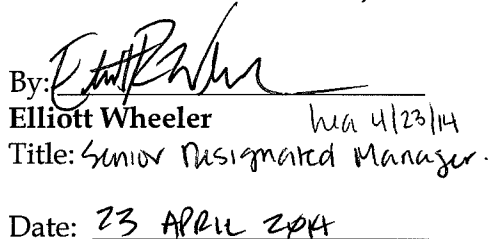 By:
Elliott Wheeler 4/23/14
Title: Senior Designated Manager.
Date: 23 APRIL 2014